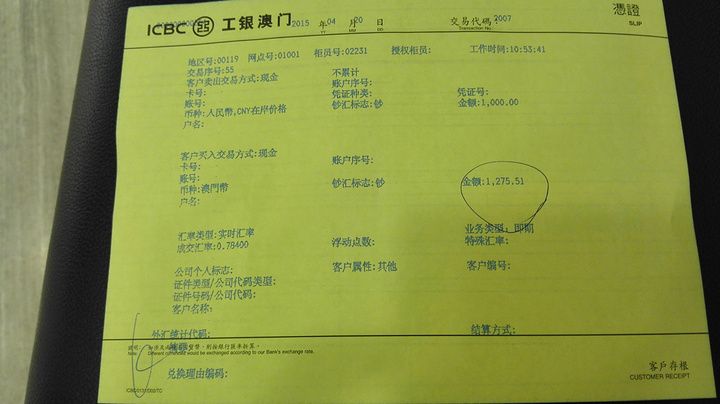 ICBC 工银澳门 2015 年 04 月 20 日 交易代码: 2007 憑證
YY MM DD Transaction No. SLIP
地区号:00119 网点号:01001 柜员号:02231 授权柜员: 工作时间:10:53:41
交易序号:55 不累计
客户卖出交易方式:现金 账户序号:
卡号: 凭证种类: 凭证号:
账号: 钞汇标志:钞 金额:1,000.00
币种:人民幣,CNY在岸价格
户名:
客户买入交易方式:现金 账户序号:
卡号:
账号: 钞汇标志:钞 金额:1,275.51
币种:澳門幣
户名:
汇率类型:实时汇率 业务类型: 即期
成交汇率:0.78400 浮动点数: 特殊汇率:
公司个人标志: 客户属性:其他 客户编号:
证件类型/公司代码类型:
证件号码/公司代码:
客户名称:
外汇统计代码: 结算方式:
Note: Different currencies would be exchanged according to our Bank's exchange rate.
兑换理由编码:
客戶存根
CUSTOMER RECEIPT